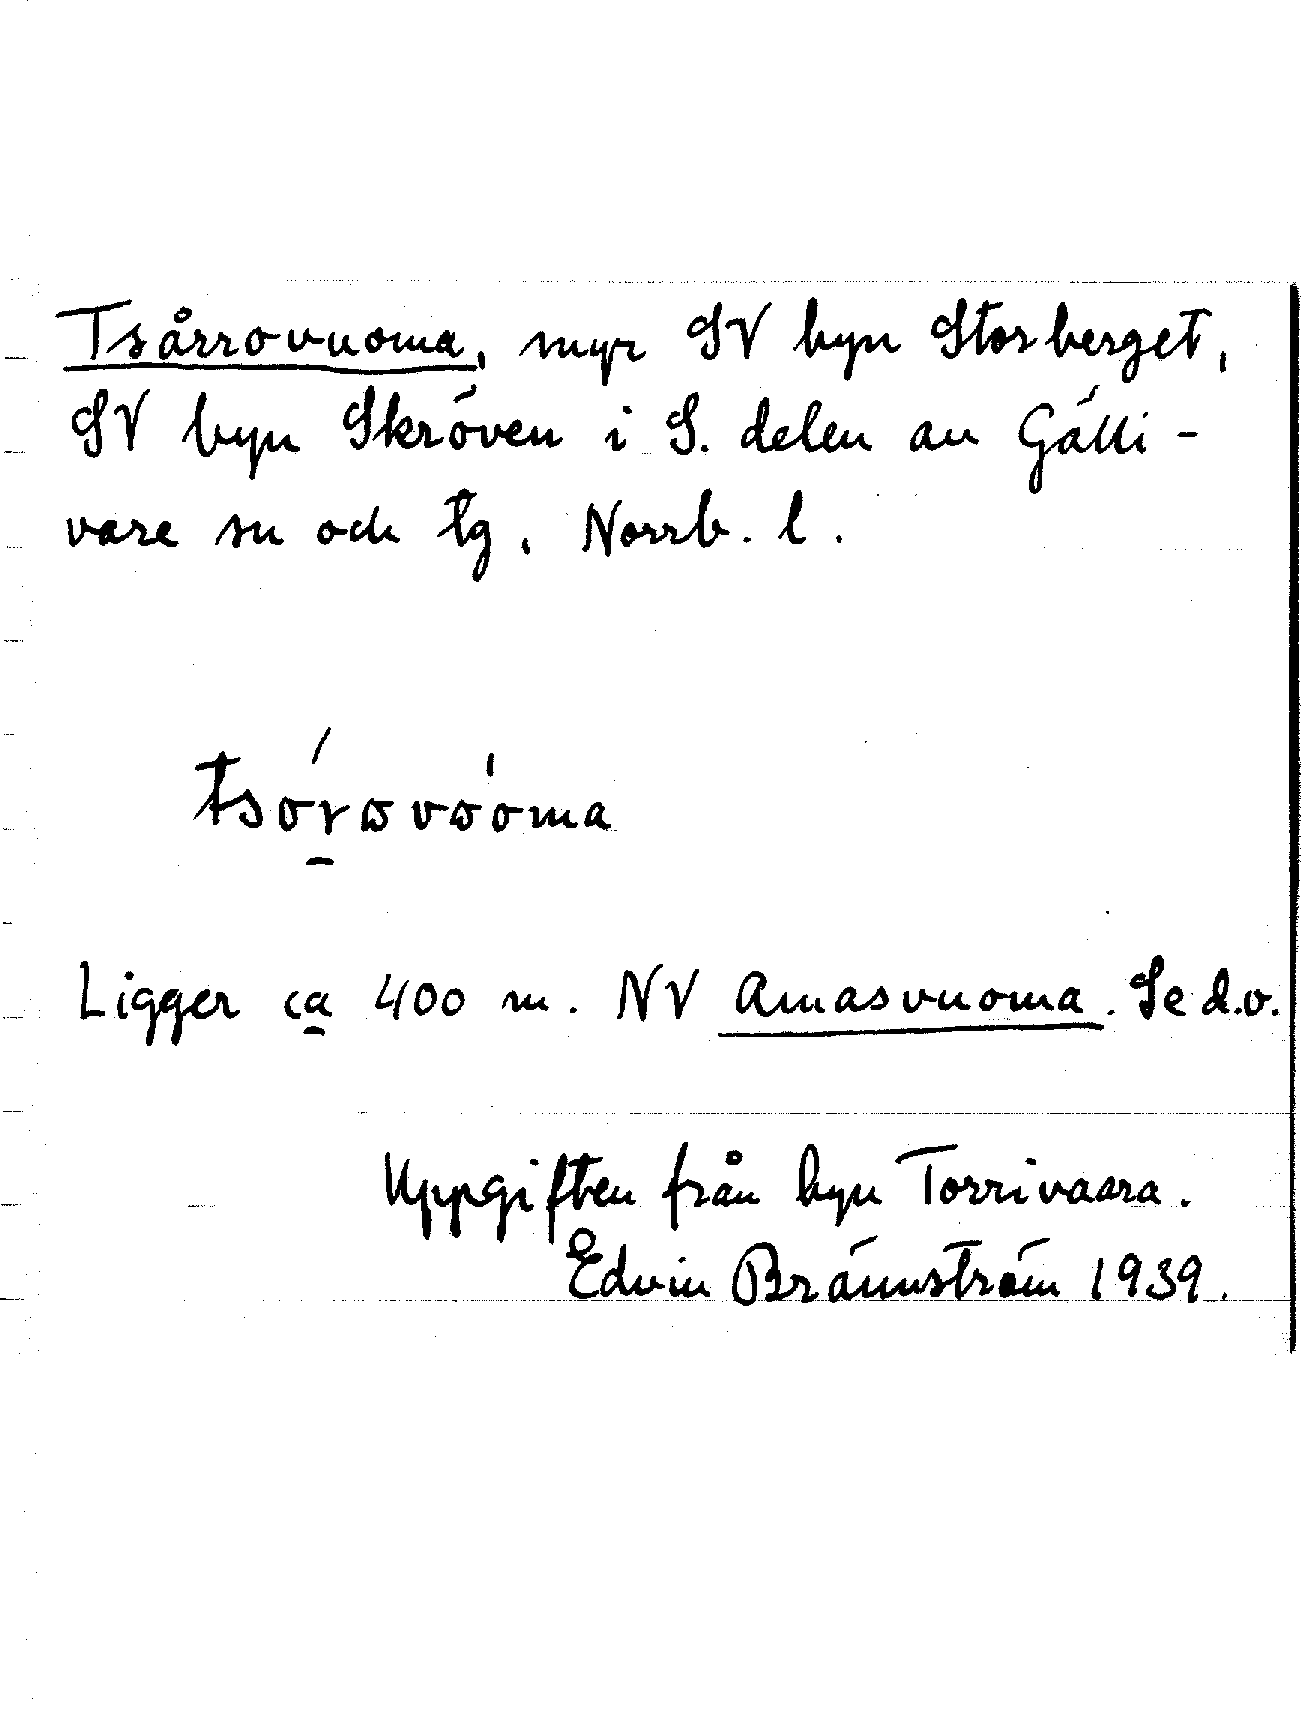 Tsårrovuoma, myr SV byn Storberget,
SV byn Skröven i S. delen av Gälli-
vare sn och tg, Norrb. l.
Ligger ca 400 m. NV Amasvuoma. Se d.o.
Uppgiften från byn Torrivaara.
Edvin Brännström 1939.